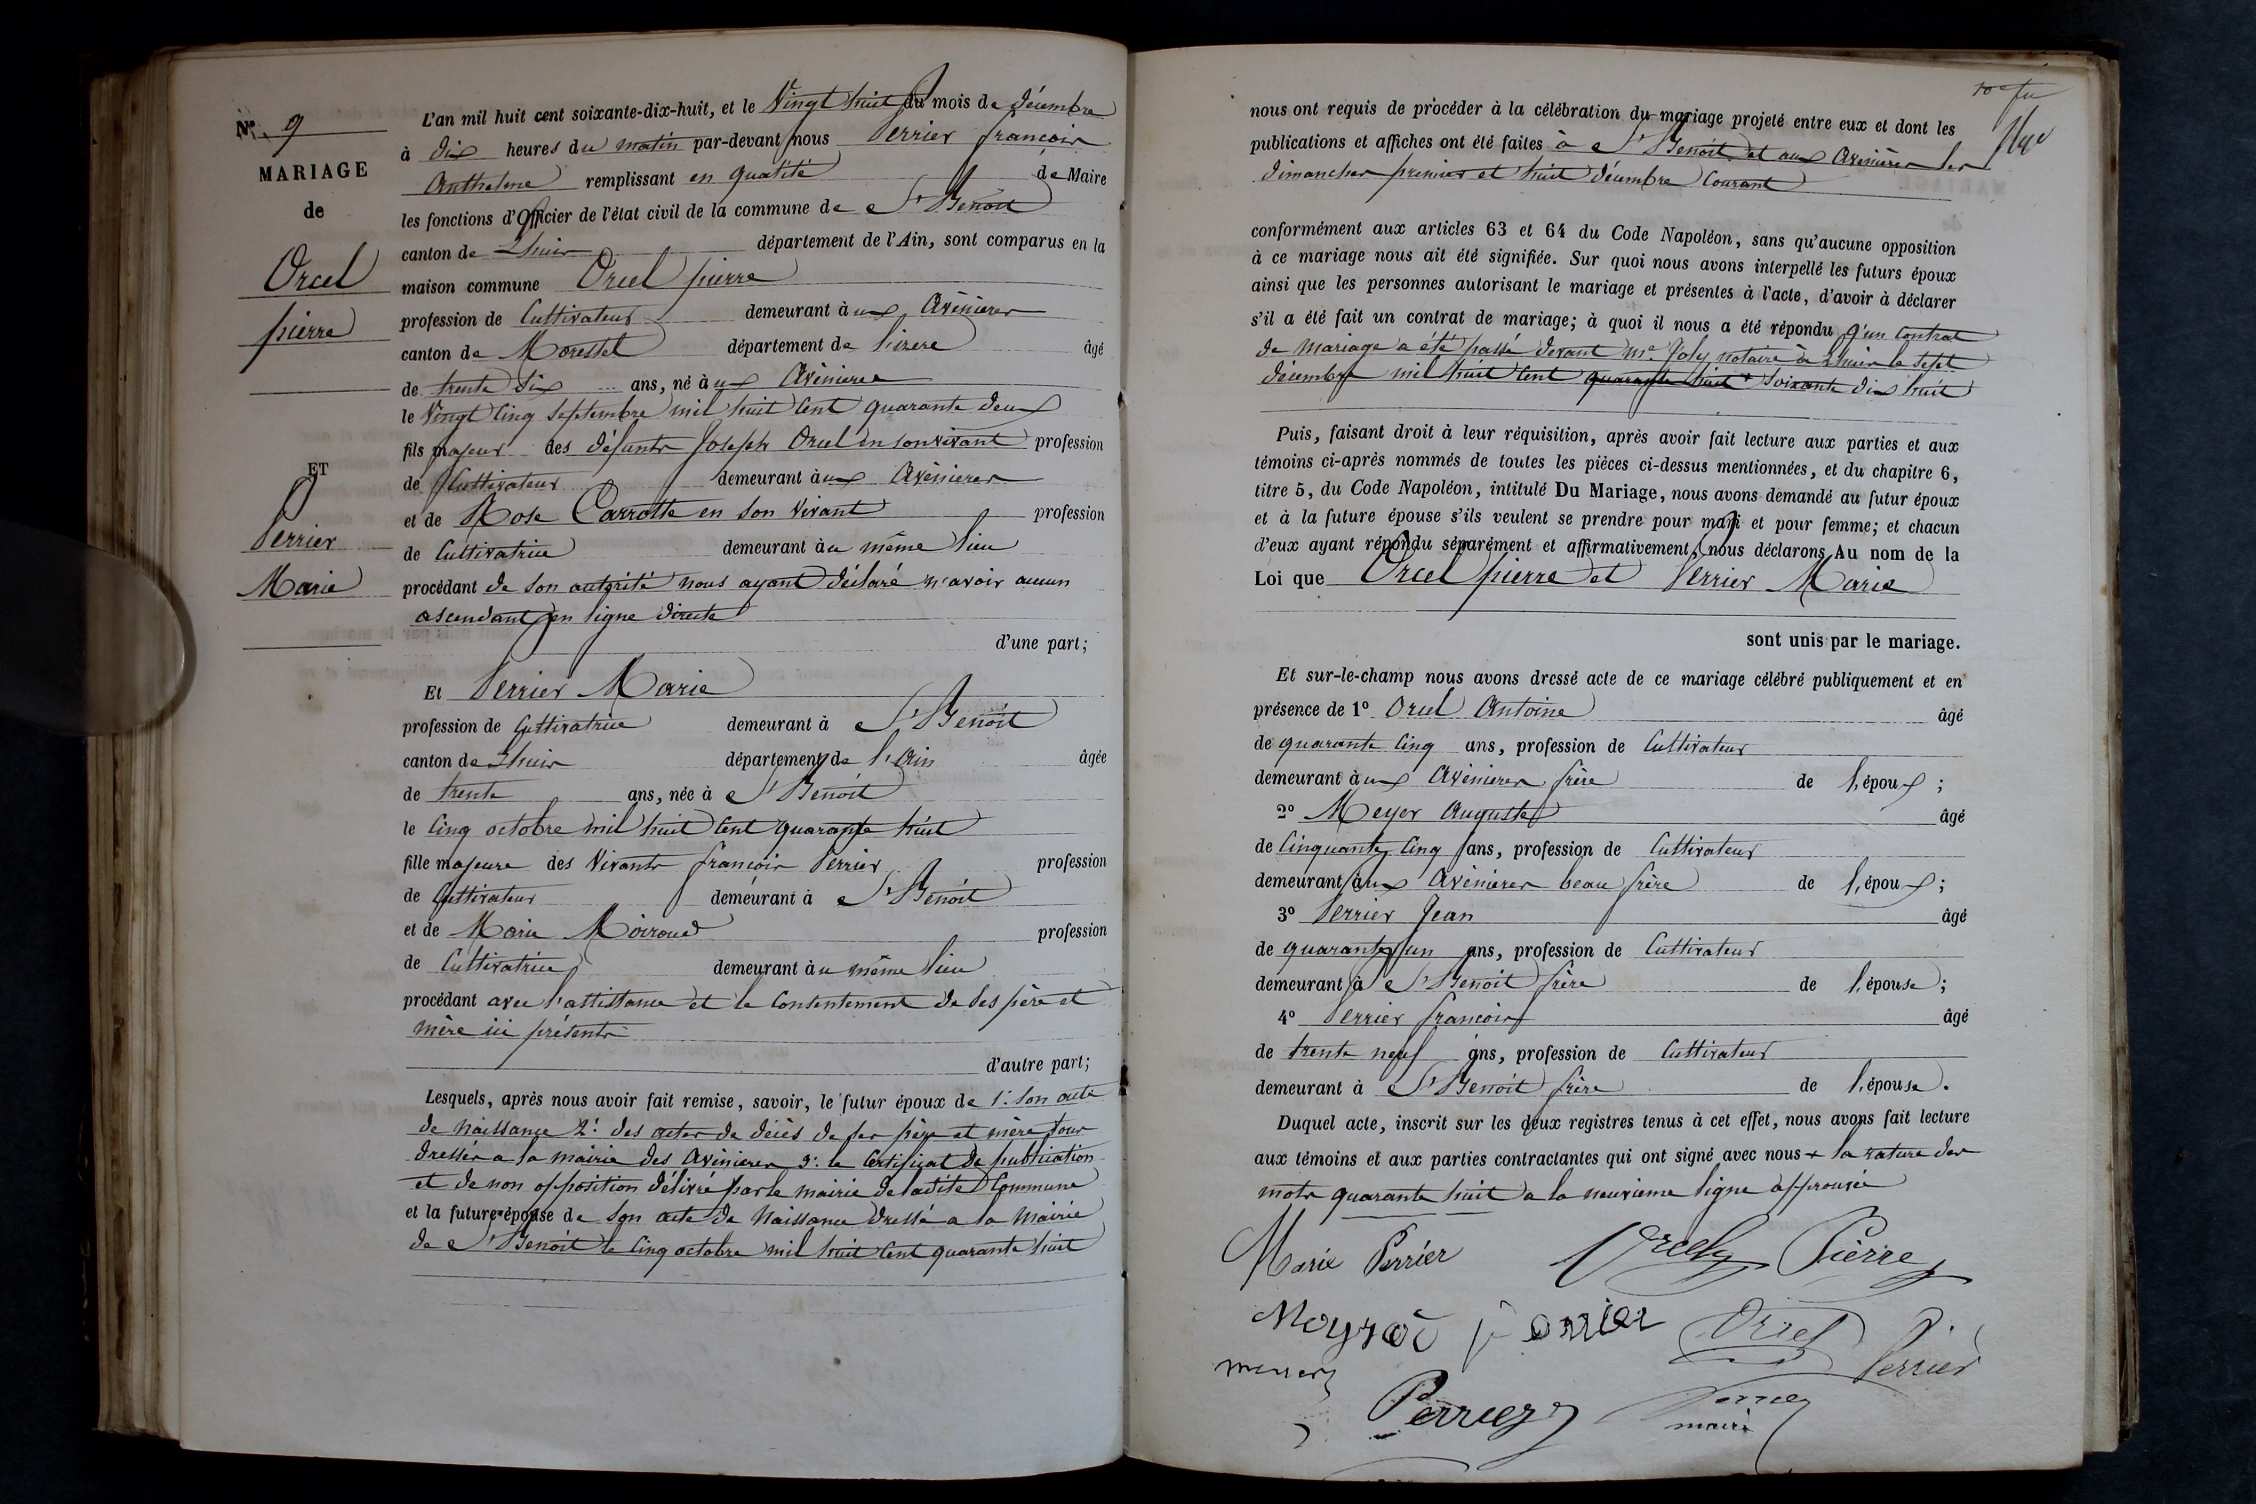 N° 9
MARIAGE
de
Orcel
pierre
ET
Perrier
Marie
L'an mil huit cent soixante-dix-huit, et le Vingt huit du mois de décembre
à dix heures du matin par-devant nous Perrier francois
Anthelme remplissant en qualité de Maire
les fonctions d'Officier de l'état civil de la commune de St Benoit
canton de Lhuis département de l'Ain, sont comparus en la
maison commune Orcel pierre
profession de Cultivateur demeurant à ux Avenieres
canton de Morestel département de l'isere âgé
de trente six ans, né à ux Avenieres
le Vingt Cinq Septembre mil huit Cent quarante deux
fils majeur des défunts Joseph Orcel en son vivant profession
de Cultivateur demeurant à ux Avenieres
et de Rose Carrotte en son vivant profession
de Cultivatrice demeurant à u même lieu
procédant de son autorité nous ayant déclaré n'avoir aucun
ascendant en ligne directe
d'une part;
Et Perrier Marie
profession de Cultivatrice demeurant à St Benoit
canton de Lhuis département de l'Ain âgée
de trente ans, née à St Benoit
le Cinq octobre mil huit Cent quarante huit
fille majeure des Vivants francois Perrier profession
de Cultivateur demeurant à St Benoit
et de Marie Moiroud profession
de Cultivatrice demeurant à u même lieu
procédant avec l'assistance et le Consentement de ses père et
mère ici présents
d'autre part;
Lesquels, après nous avoir fait remise, savoir, le futur époux de 1° Son acte
de Naissance 2° des actes de décès de ses père et mère tous
dressés a la mairie des Avenieres 3° le Certificat de publication
et de non opposition délivré par le mairie de ladite Commune
et la future épouse de Son acte de Naissance dressé a la Mairie
de St Benoit le Cinq octobre mil huit Cent quarante huit
nous ont requis de procéder à la célébration du mariage projeté entre eux et dont les
publications et affiches ont été faites à St Benoit et aux Avenieres les
dimanches premier et huit décembre Courant
conformément aux articles 63 et 64 du Code Napoléon, sans qu'aucune opposition
à ce mariage nous ait été signifiée. Sur quoi nous avons interpellé les futurs époux
ainsi que les personnes autorisant le mariage et présentes à l'acte, d'avoir à déclarer
s'il a été fait un contrat de mariage; à quoi il nous a été répondu q'un Contrat
de Mariage a été passé devant me Joly notaire à Lhuis le Sept
décembre mil huit Cent quarante huit + Soixante dix huit
Puis, faisant droit à leur réquisition, après avoir fait lecture aux parties et aux
témoins ci-après nommés de toutes les pièces ci-dessus mentionnées, et du chapitre 6,
titre 5, du Code Napoléon, intitulé Du Mariage, nous avons demandé au futur époux
et à la future épouse s'ils veulent se prendre pour mari et pour femme; et chacun
d'eux ayant répondu séparément et affirmativement, nous déclarons Au nom de la
Loi que Orcel pierre et Perrier Marie
sont unis par le mariage.
Et sur-le-champ nous avons dressé acte de ce mariage célébré publiquement et en
présence de 1° Orcel Antoine âgé
de quarante Cinq ans, profession de Cultivateur
demeurant à ux Avenieres frère de l'époux;
2° Meyer Auguste âgé
de Cinquante Cinq ans, profession de Cultivateur
demeurant à ux Avenieres beau frère de l'époux;
3° Perrier Jean âgé
de quarante un ans, profession de Cultivateur
demeurant à St Benoit frère de l'épouse;
4° Perrier francois âgé
de trente neuf ans, profession de Cultivateur
demeurant à St Benoit frère de l'épouse.
Duquel acte, inscrit sur les deux registres tenus à cet effet, nous avons fait lecture
aux témoins et aux parties contractantes qui ont signé avec nous + la rature des
mots quarante huit a la neuvieme ligne approuvée
Marie Perrier Orcel Pierre
Orcel
Perrier
Perrier
maire